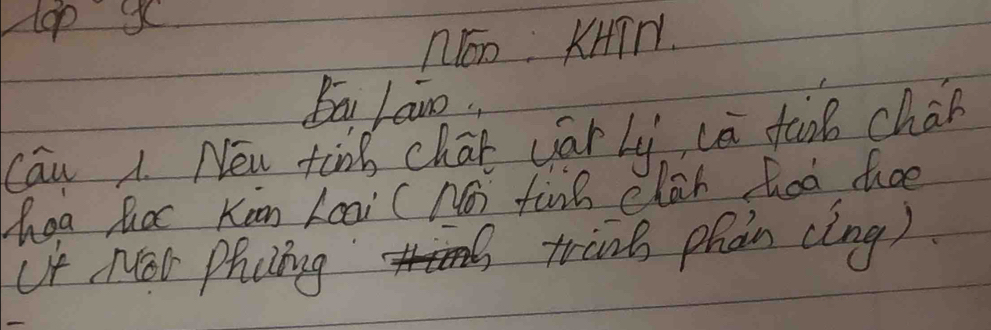 Lớp 9C
Môn : KHTN.
Bài Làm.
Câu 1. Nêu tính chất vật lý, và tính chất
hoá học Kim Loại (Mỗi tính chất hoá học
Một Phương trình phản ứng).